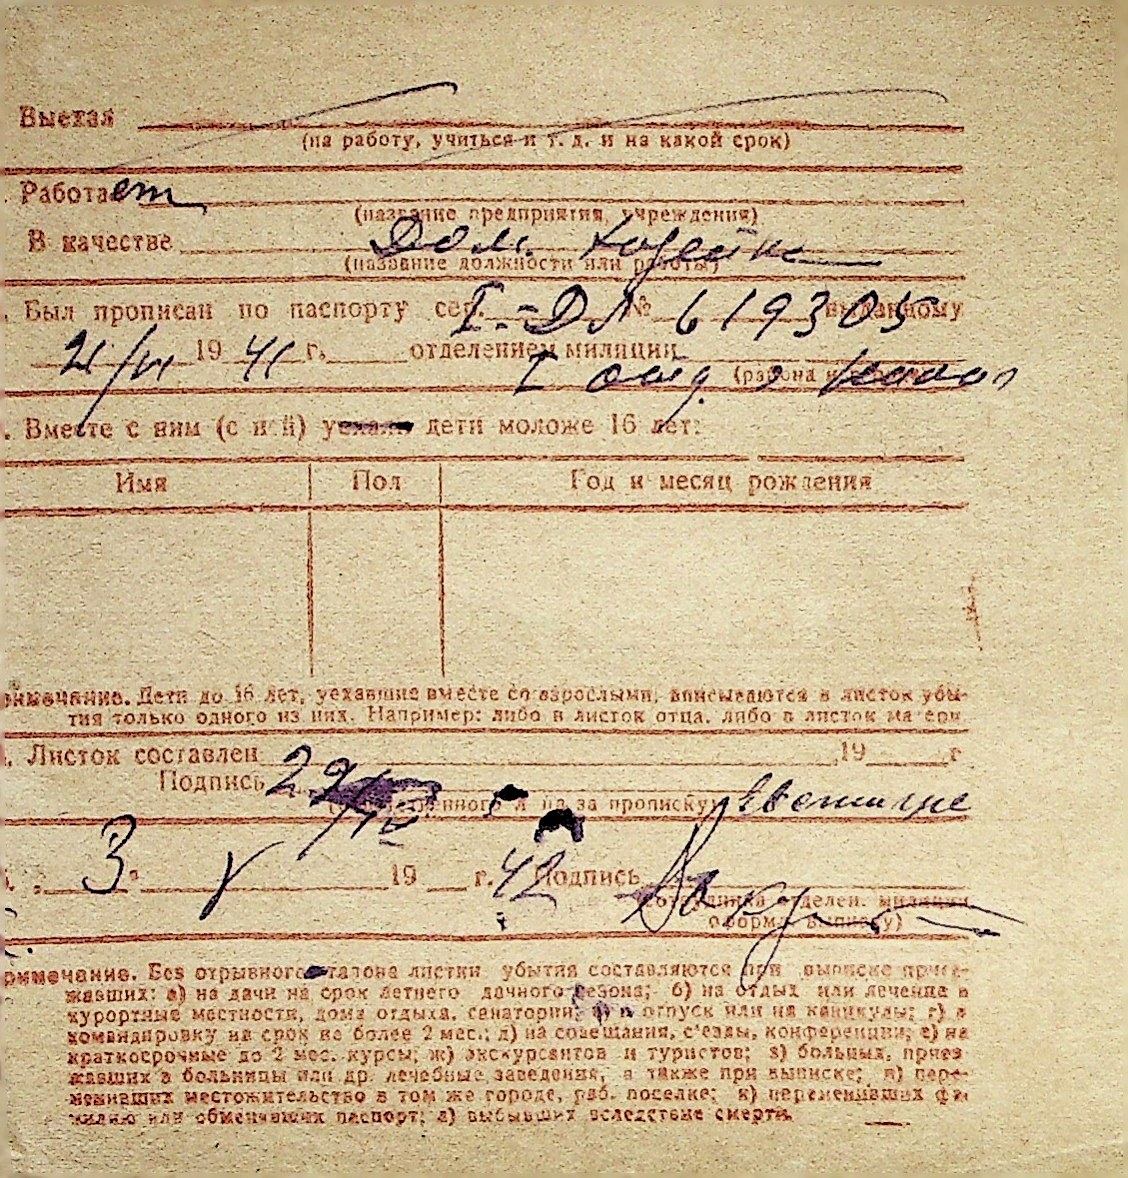 Выехал
(на работу, учиться и т. д. и на какой срок)
Работает
(название предприятия, учреждения)
В качестве Дом. хозяйка
(название должности или работы)
Был прописан по паспорту сер. I-ДЛ № 619305 выданному
21/VI 19 41 г. отделением милиции
I отд.
Вместе с ним (с ней) уехали дети моложе 16 лет:
Имя Пол Год и месяц рождения
римечание. Дети до 16 лет, уехавшие вместе со взрослыми, вписываются в листок убы-
тия только одного из них. Например: либо в листок отца, либо в листок матери.
Листок составлен 19 г
Подпись 29/IV
за прописку)
3 V 19 г. 42 Подпись
сотрудника отделен. милиции
оформл. выписку)
римечание. Без отрывного талона листки убытия составляются при выписке приез-
жавших: а) на дачи на срок летнего дачного сезона; б) на отдых или лечение в
курортные местности, дома отдыха, санатории; в) в отпуск или на каникулы; г) в
командировку на срок не более 2 мес.; д) на совещания, с'езды, конференции; е) на
краткосрочные до 2 мес. курсы; ж) экскурсантов и туристов; з) больных, приез-
жавших в больницы или др. лечебные заведения, а также при выписке; и) пере-
менивших местожительство в том же городе, раб. поселке; к) переменивших фа-
милию или обменявших паспорт; л) выбывших вследствие смерти.